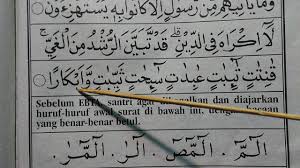 وَمَا يَأْتِيهِمْ مِنْ رَسُولٍ إِلَّا كَانُوا بِهِ يَسْتَهْزِءُونَ
لَا إِكْرَاهَ فِي الدِّينِ قَدْ تَبَيَّنَ الرُّشْدُ مِنَ الْغَيِّ
قٰنِتٰتٍ تٰٓئِبٰتٍ عٰبِدٰتٍ سٰٓئِحٰتٍ ثَيِّبٰتٍ وَّاَبْكَارًا
Sebelum EBTA, santri agar dan diajarkan
huruf-huruf awal surat di bawah ini,
yang benar-benar betul.
الٓمٓ. الٓمٓصٓ. الٓرٰ. الٓمٓرٰ.